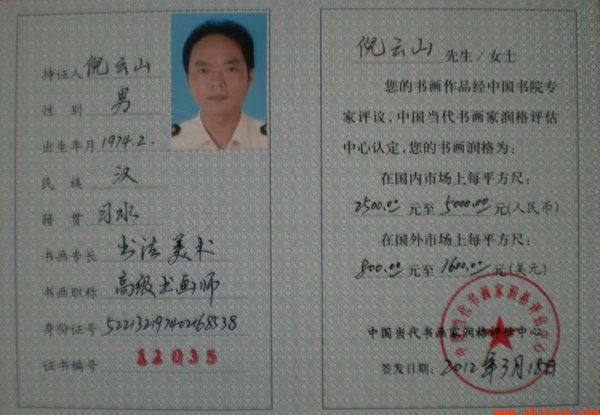 持证人 倪云山
性别 男
出生年月 1974.2.
民族 汉
籍贯 习水
书画专长 书法 美术
书画职称 高级书画师
身份证号 522132197402168538
证书编号 12035
倪云山 先生/女士
您的书画作品经中国书院专
家评议，中国当代书画家润格评估
中心认定，您的书画润格为：
在国内市场上每平方尺：
2500.00 元至 5000.00 元(人民币)
在国外市场上每平方尺：
800.00 元至 1600.00 元(美元)
中国当代书画家润格评估中心
中国当代书画家润格评估中心
签发日期：2012年3月18日